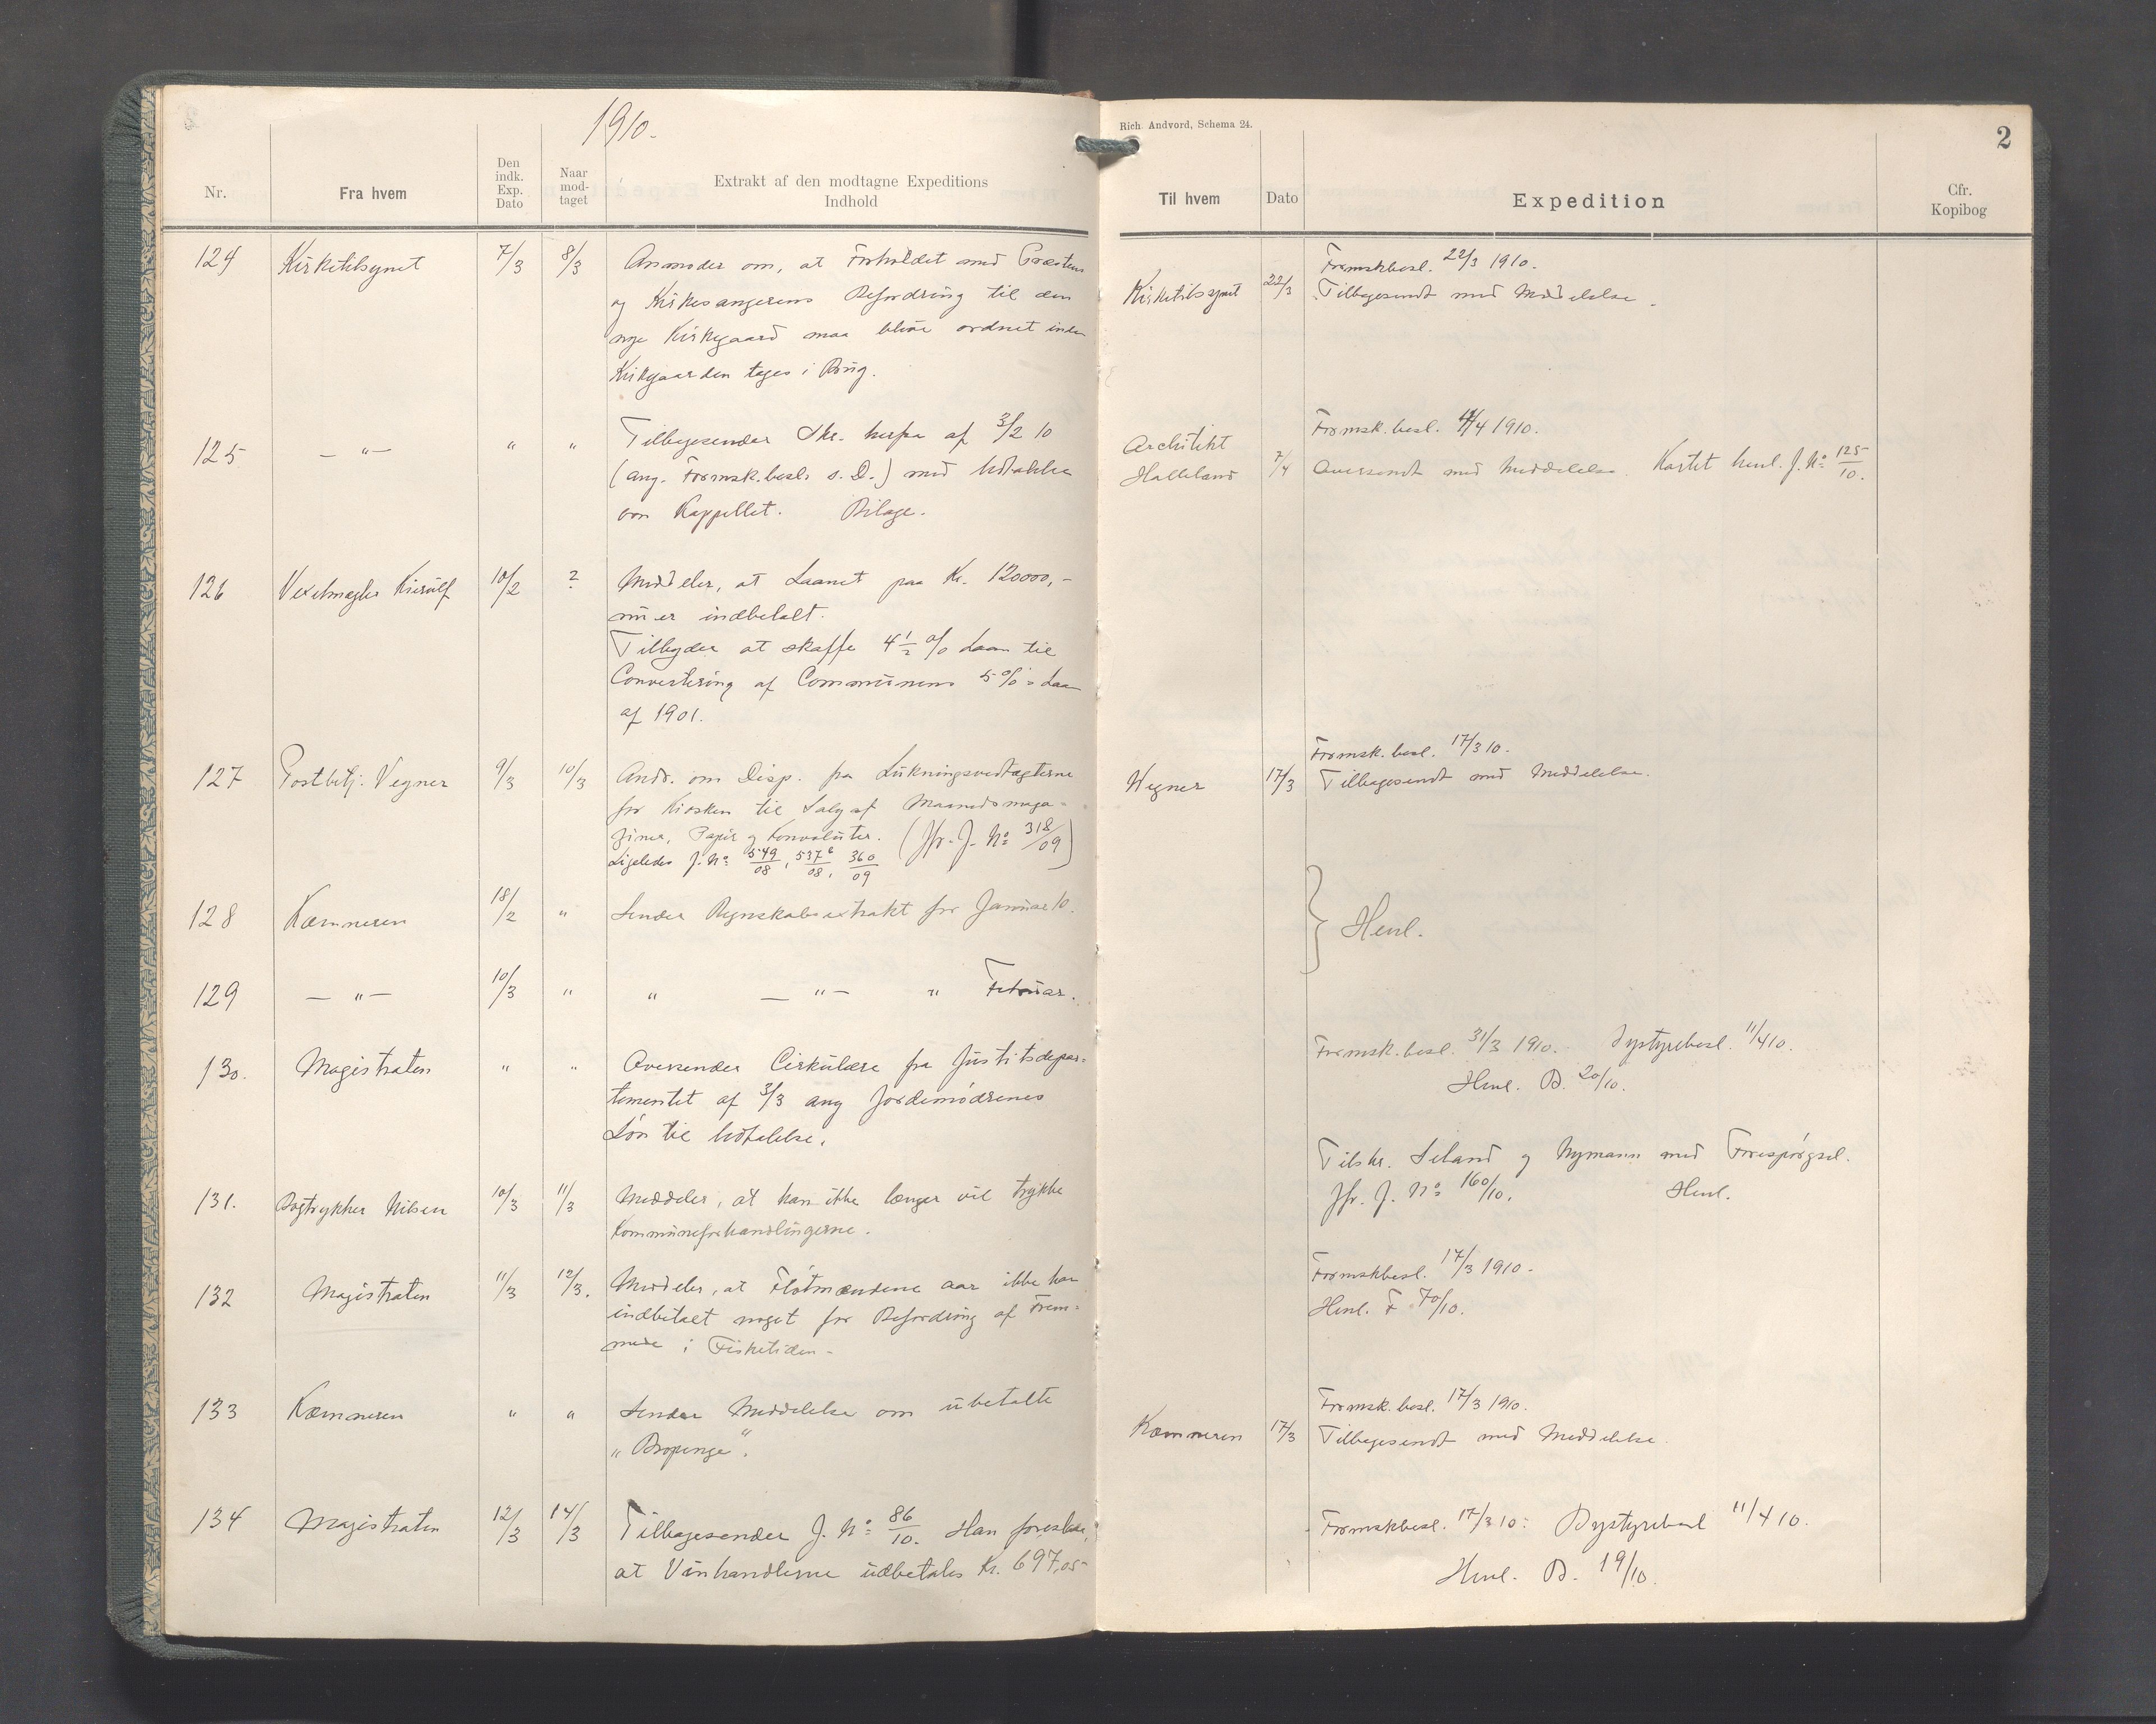 1910.
Nr.
Fra hvem
Den indk. Exp. Dato
Naar mod- taget
Extrakt af den modtagne Expeditions Indhold
124 Kirketilsynet 7/3 8/3 Anmoder om, at Forholdet med Præstens
og Kirkesangerens Befordring til den
nye Kirkegaard maa blive ordnet inden
Kirkegaarden tages i Brug.
125 — " — " " Tilbagesender Skr. herfra af 3/2 10
(ang. Formsk.besl. s. D.) med Udtalelse
om Kappellet. Bilage.
126 Vexelmægler Kierulf 10/2 ? Meddeler, at Laanet paa Kr. 120000,-
nu er indbetalt.
Tilbyder at skaffe 4 1/2 % Laan til
Convertering af Communens 5 %'s Laan
af 1901.
127 Postbetj. Vegner 9/3 10/3 Andr. om Disp. fra Lukningsvedtægterne
for Kiosken til Salg af Maanedsmaga-
ziner, Papir og Konvolutter. (Jfr. J. No 318/09)
Ligeledes J. No 549/08, 537 6/08, 360/09
128 Kæmneren 18/2 " Sender Regnskabsextrakt for Januar 10.
129 — " — 10/3 " " — " — " Februar.
130. Magistraten " " Oversender Cirkulære fra Justitsdepar-
tementet af 3/3 ang Jordemødrenes
Løn til Udtalelse.
131. Bogtrykker Nilsen 10/3 11/3 Meddeler, at han ikke længer vil trykke
Kommuneforhandlingerne.
132 Magistraten 11/3 12/3. Meddeler, at Fløtmændene iaar ikke har
indbetalt noget for Befordring af Frem-
mede i Fisketiden-
133 Kæmneren " " Sender Meddelelse om ubetalte
"Bropenge".
134 Magistraten 12/3 14/3 Tilbagesender J. No 86/10. Han foreslaar,
at Vinhandlerne udbetales Kr. 697,05
Rich. Andvord, Schema 24.
2
Til hvem
Dato
Expedition
Cfr. Kopibog
Formskbesl. 22/3 1910.
Kirketilsynet 22/3 Tilbagesendt med Meddelelse.
Formsk.besl. 4/4 1910.
Architekt
Halleland 7/4 Oversendt med Meddelelse. Kartet henl. J. No 125/10.
Formsk.besl. 17/3 10.
Vegner 17/3 Tilbagesendt med Meddelelse.
} Henl.
Formsk.besl. 31/3 1910. Bystyrebesl. 11/4 10.
Henl. B. 20/10.
Tilskr. Seland og Nymann med Forespørgsel.
Jfr. J. No 160/10. Henl.
Formskbesl. 17/3 1910.
Henl. F 70/10.
Formsk.besl. 17/3 1910.
Kæmneren 17/3 Tilbagesendt med Meddelelse.
Formskbesl. 17/3 10. Bystyrebesl 11/4 10.
Henl. B. 19/10.